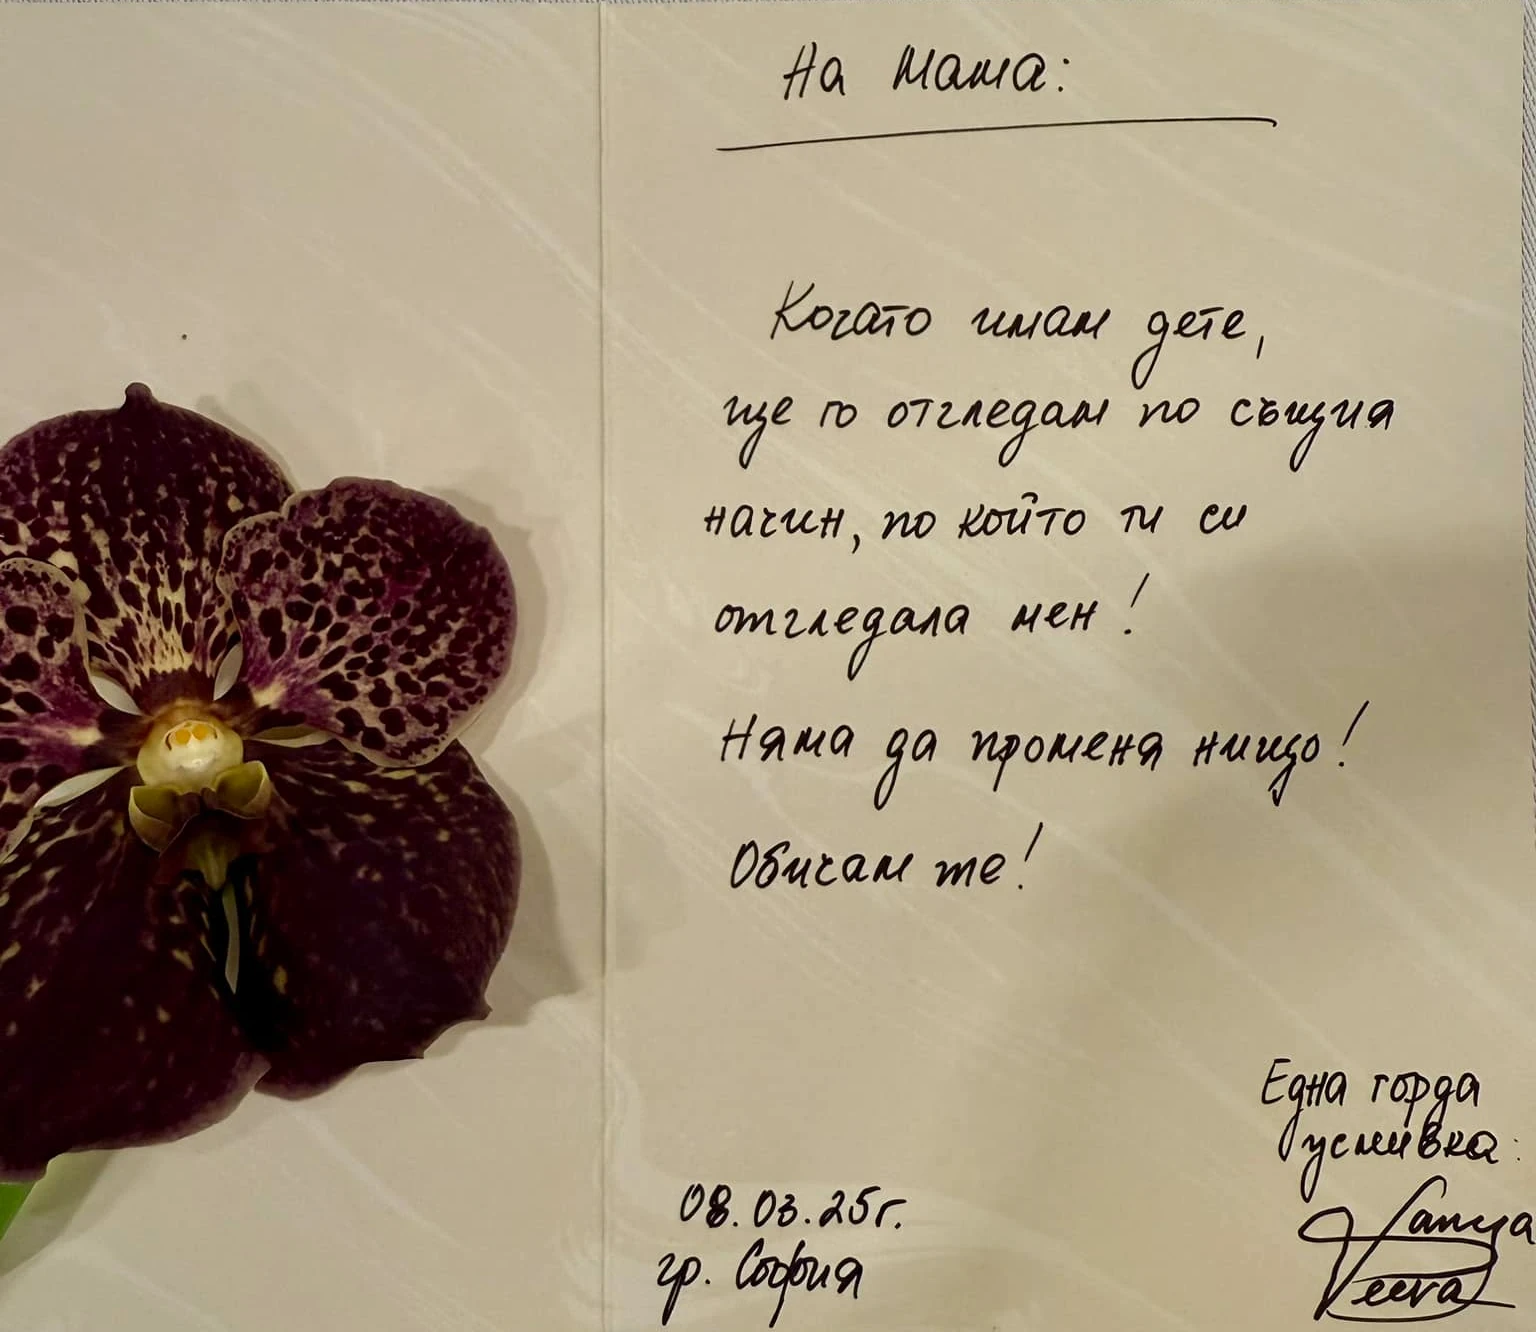 На мама:
Когато имам дете,
ще го отгледам по същия
начин, по който ти си
отгледала мен!
Няма да променя нищо!
Обичам те!
Една горда
усмивка:
08.03.25г.
гр. София